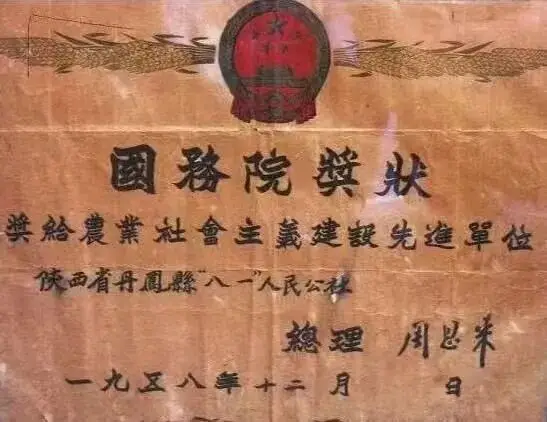 國務院獎狀
獎給農業社會主義建設先進單位
陝西省丹鳳縣“八一”人民公社
總理 周恩来
一九五八年十二月 日